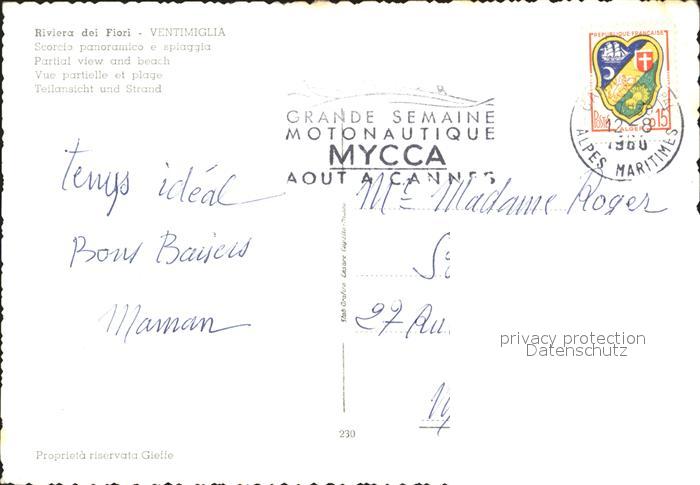 Riviera dei Fiori - VENTIMIGLIA
Scorcio panoramico e spiaggia
Partial view and beach
Vue partielle et plage
Teilansicht und Strand
GRANDE SEMAINE
MOTONAUTIQUE
MYCCA
AOUT A CANNES
REPUBLIQUE FRANÇAISE
ALGER
15
12-8
1960
ALPES MARITIMES
temps idéal
Bons Baisers
Maman
Mr et Madame Roger
27 Ru
privacy protection
Datenschutz
230
Proprietà riservata Gieffe